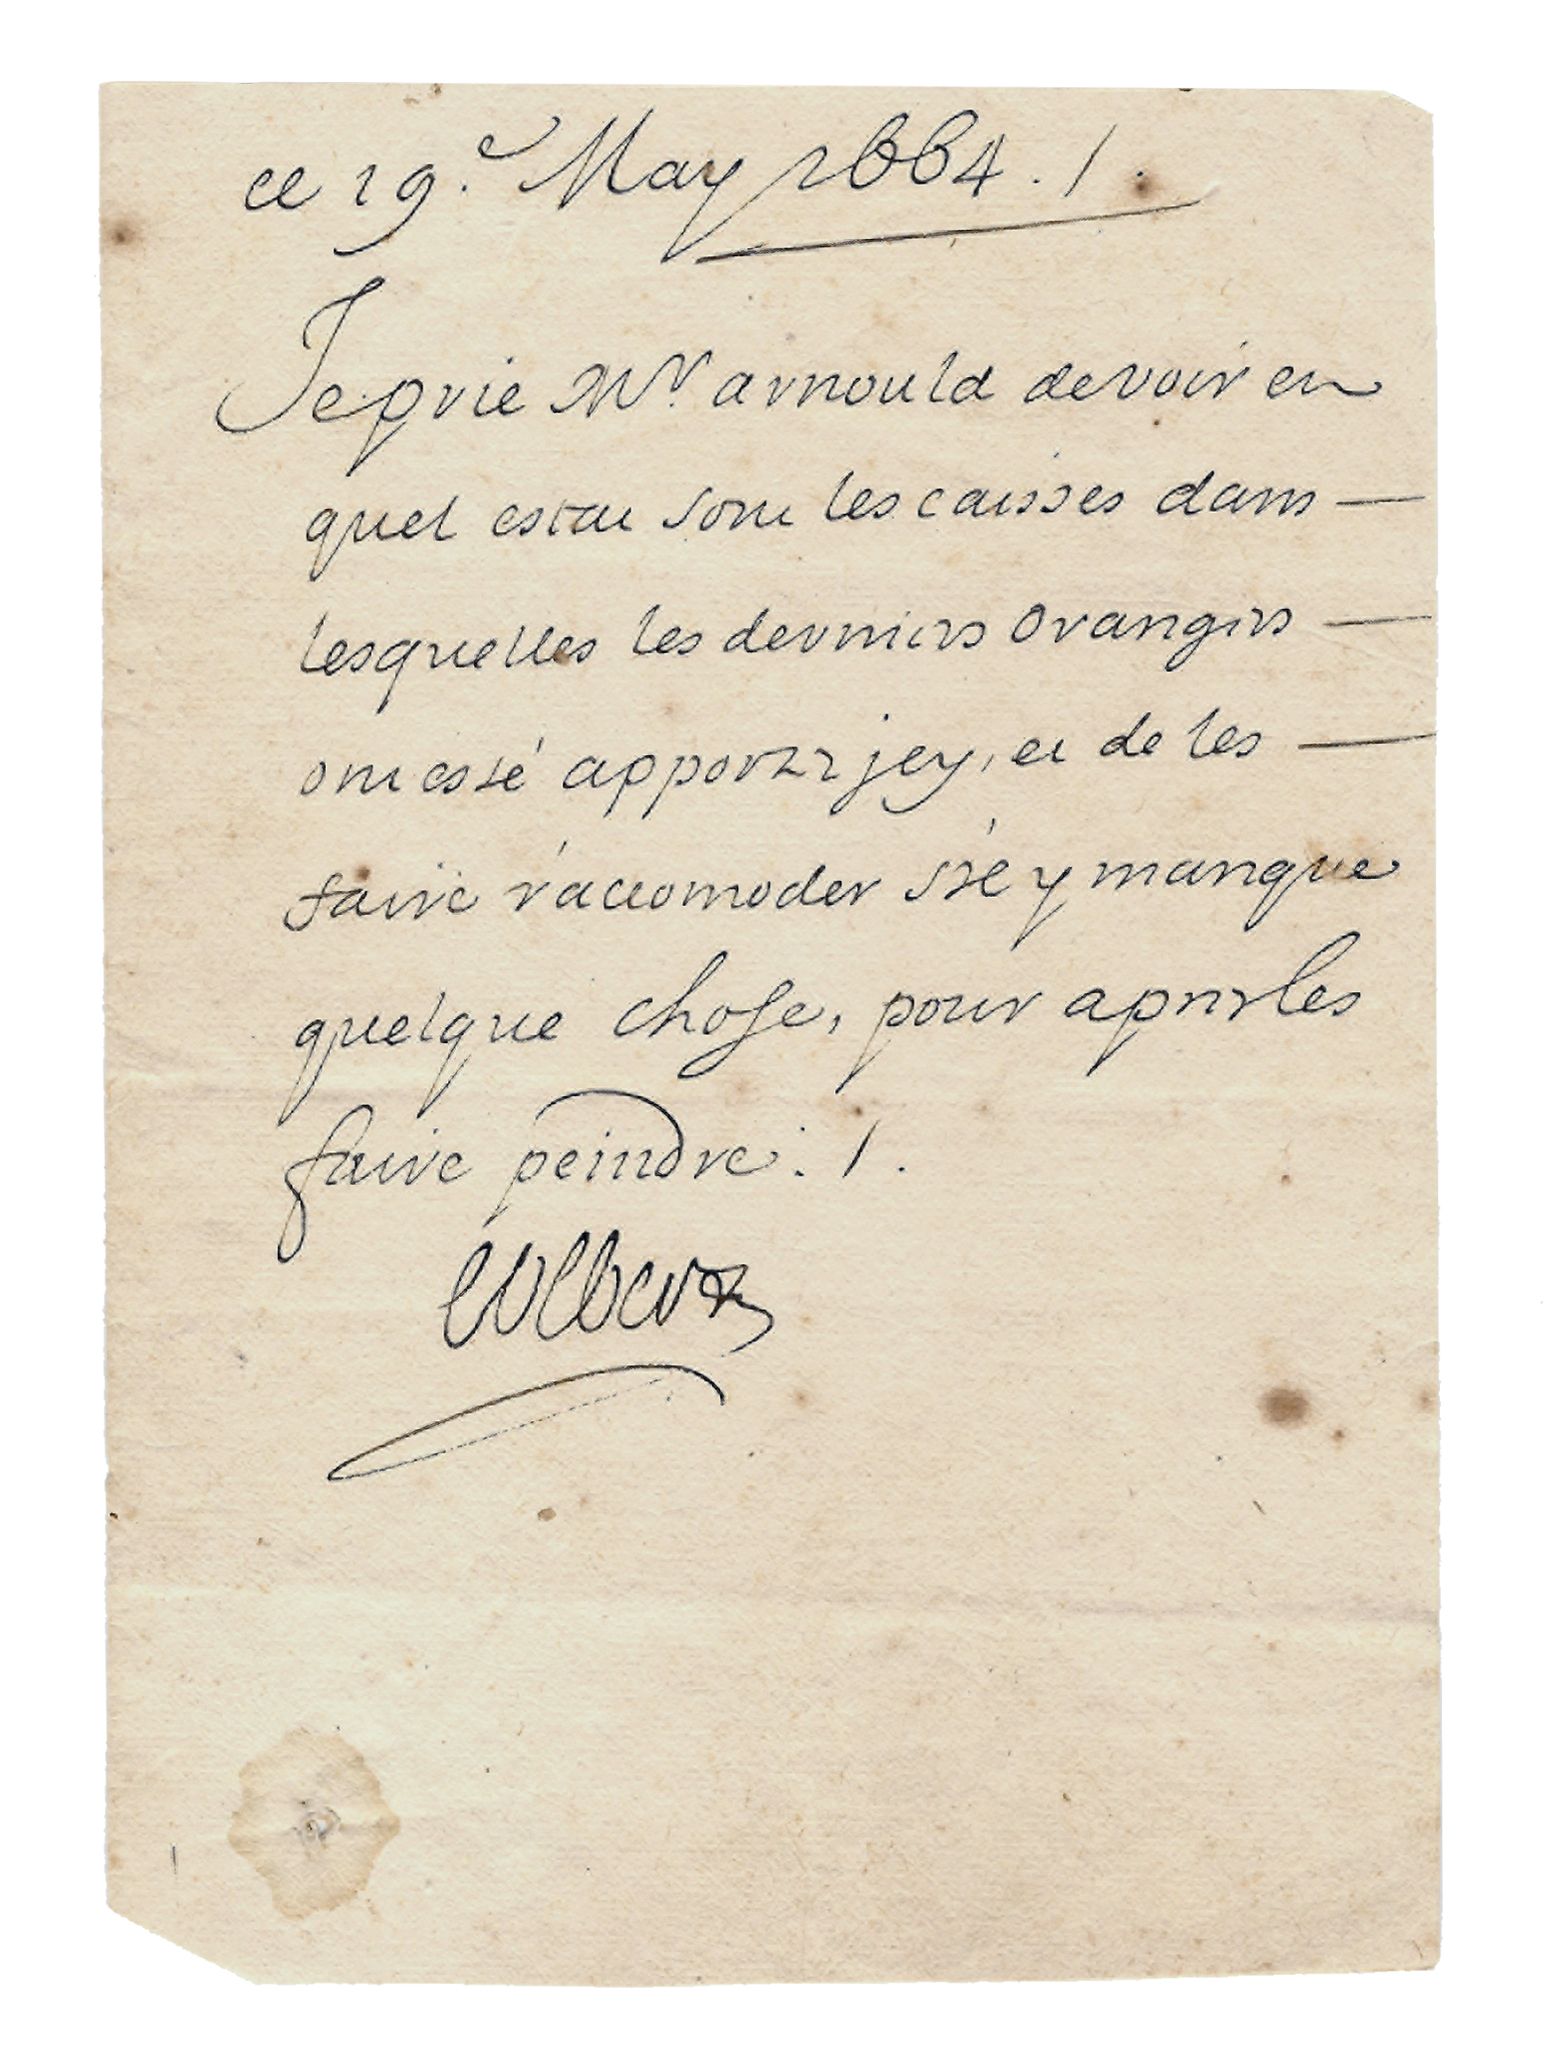 ce 19.e May 1664. /.
Je prie Mr. arnould de voir en
quel estat sont les caisses dans —
lesquelles les derniers orangers —
ont esté apportez jcy, et de les —
faire r'accomoder s'il y manque
quelque chose, pour apres les
faire peindre. /.
Colbert